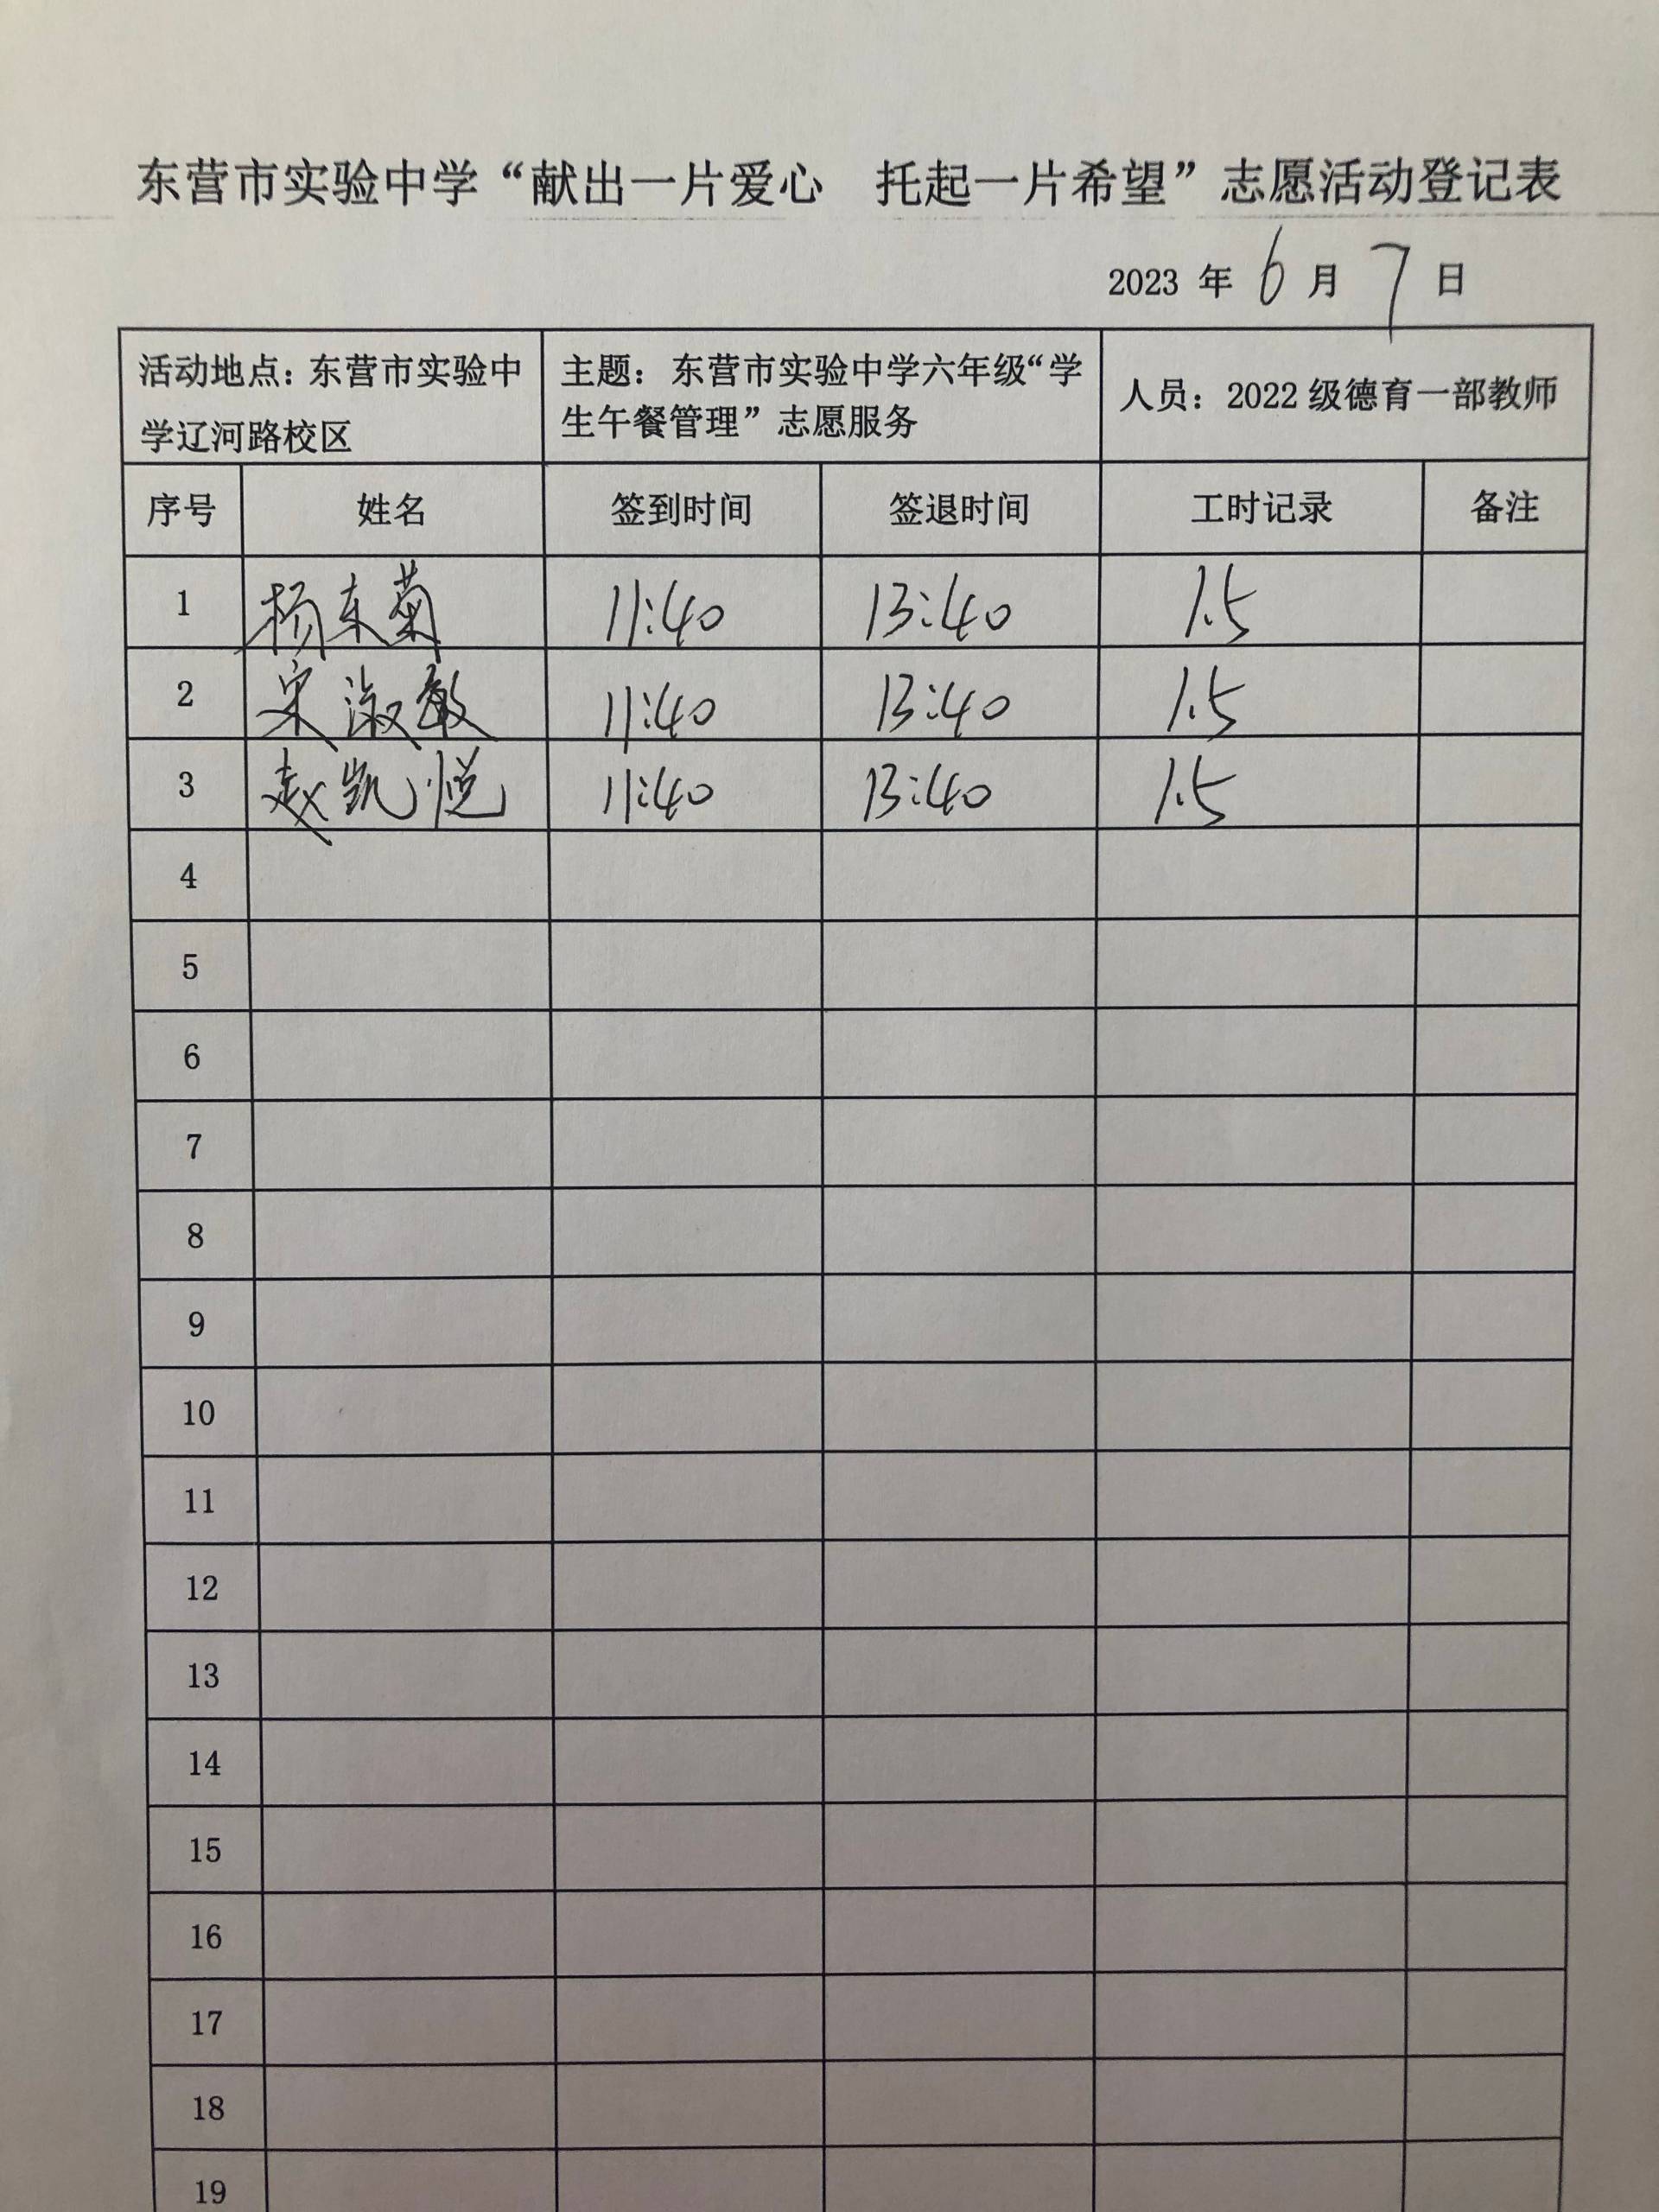 东营市实验中学“献出一片爱心　托起一片希望”志愿活动登记表
2023 年 6 月 7 日
活动地点：东营市实验中学辽河路校区 主题：东营市实验中学六年级“学生午餐管理”志愿服务 人员：2022 级德育一部教师
序号 姓名 签到时间 签退时间 工时记录 备注
1 杨东菊 11:40 13:40 1.5
2 宋淑敏 11:40 13:40 1.5
3 赵凯悦 11:40 13:40 1.5
4
5
6
7
8
9
10
11
12
13
14
15
16
17
18
19